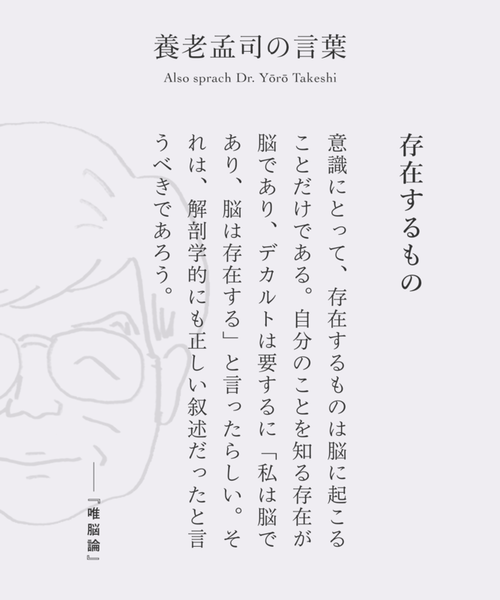 養老孟司の言葉
Also sprach Dr. Yōrō Takeshi
存在するもの
意識にとって、存在するものは脳に起こる
ことだけである。自分のことを知る存在が
脳であり、デカルトは要するに「私は脳で
あり、脳は存在する」と言ったらしい。そ
れは、解剖学的にも正しい叙述だったと言
うべきであろう。
──『唯脳論』